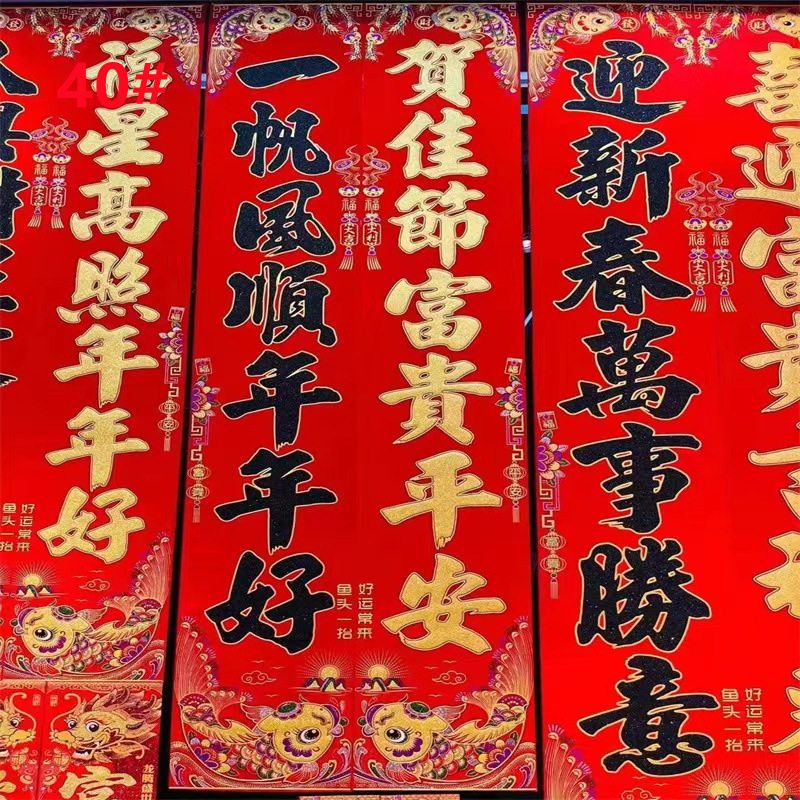 40#
福星高照年年好
一帆風順年年好
賀佳節富貴平安
迎新春萬事勝意
喜迎富貴
鱼头一抬
好运常来
鱼头一抬
好运常来
鱼头一抬
好运常来
福
大吉
福
大利
福
大吉
福
大利
福
大吉
福
大利
平安
富貴
平安
富貴
龙腾盛世
發
財
發
財
發
財